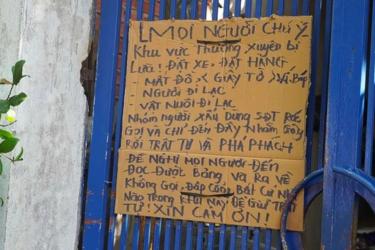 MỌI NGƯỜI CHÚ Ý
Khu vực Thường xuyên bị
Lừa! ĐẶT XE, ĐẶT HÀNG
MẤT ĐỒ, GIẤY TỜ
NGƯỜI ĐI LẠC
VẬT NUÔI ĐI LẠC
Nhóm người xấu Dùng SĐT Rác
Gọi VÀ CHỈ ĐẾN ĐÂY NHẰM Gây
RỐI TRẬT TỰ VÀ PHÁ PHÁCH
ĐỀ NGHỊ MỌI NGƯỜI ĐẾN
ĐỌC ĐƯỢC BẢNG VÀ RA VỀ
KHÔNG GỌI, ĐẬP CỔNG Bất Cứ
NÀO TRONG KHU NÀY ĐỂ GIỮ
TỰ! XIN CẢM ƠN!